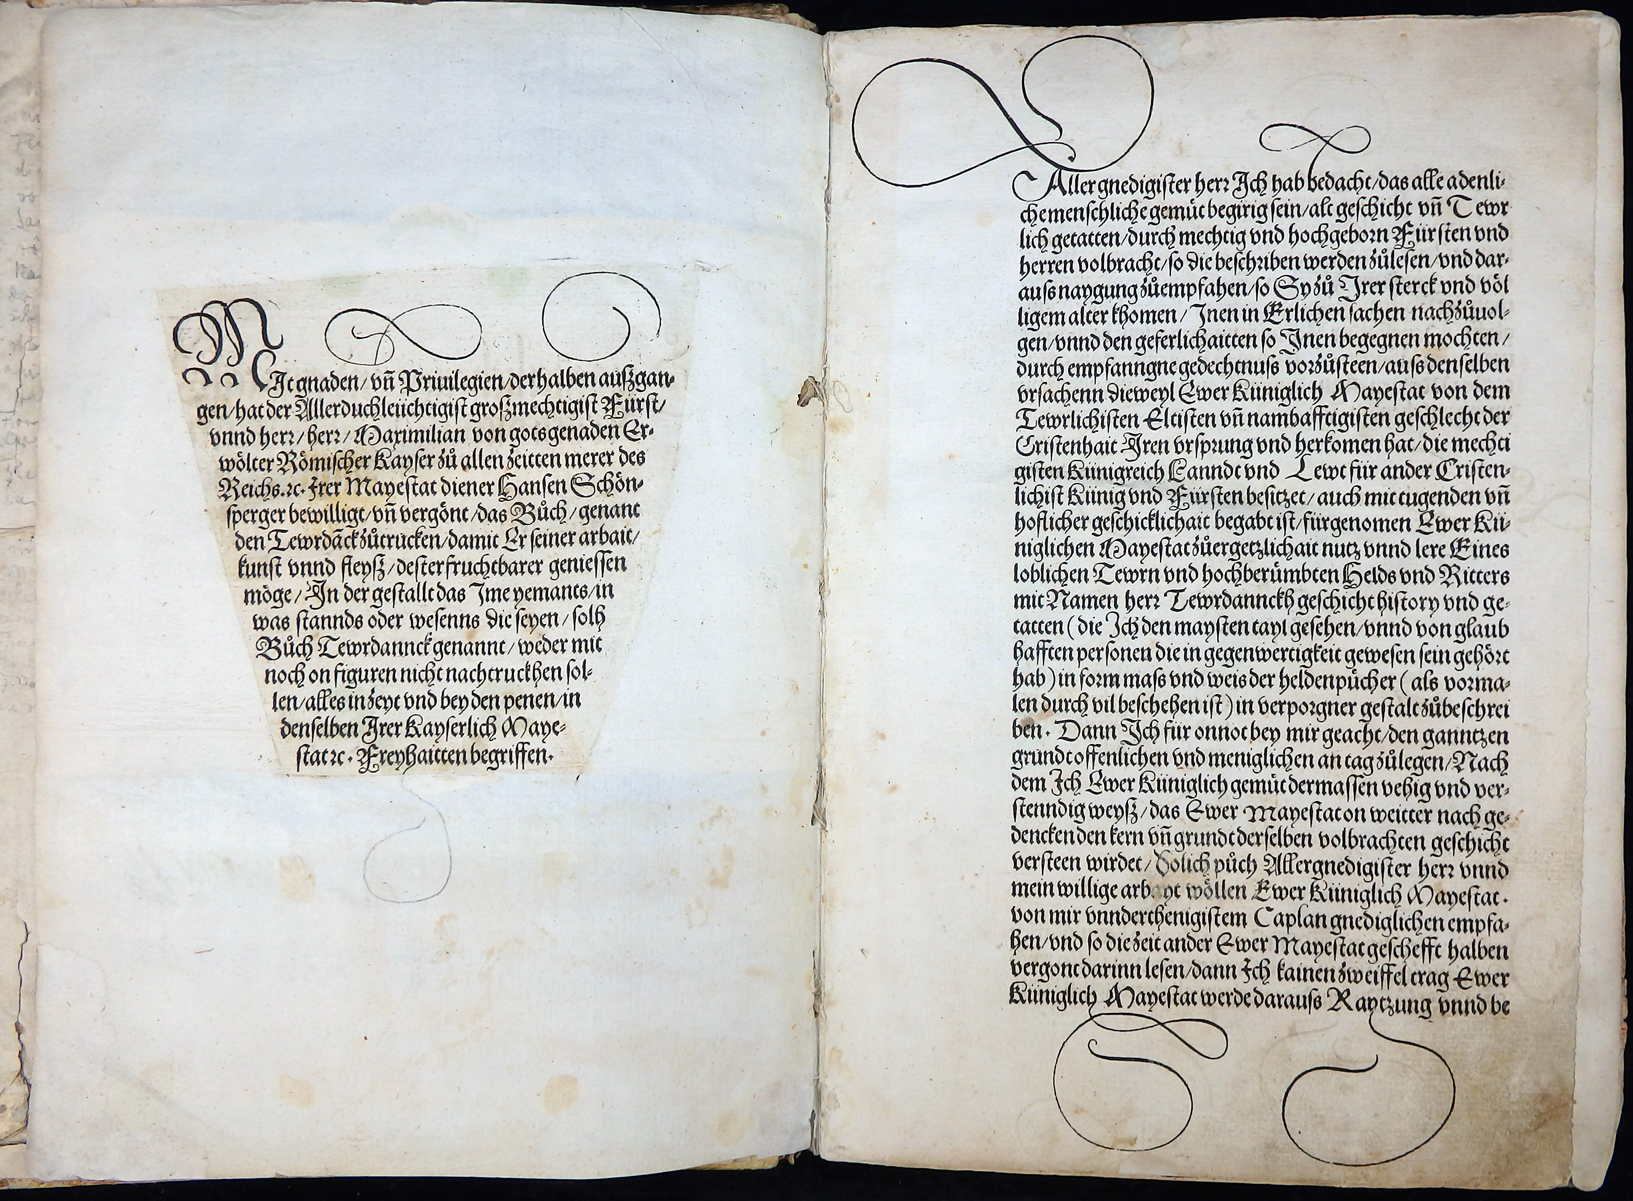 MIt gnaden/ vñ Priuilegien/derhalben auſzgan-
gen/hat der Allerduchleüchtigiſt groſzmechtigiſt Fürſt/
vnnd herr/herr/Maximilian von gots genaden Er-
wölter Römiſcher Kayſer zů allen zeitten merer des
Reichs.ꝛc. Irer Mayeſtat diener Hanſen Schön-
ſperger bewilligt/vñ vergönt/das Bůch/genant
den Tewrdãck zůtrucken/damit Er ſeiner arbait/
kunſt vnnd fleyſz/deſterfruchtbarer genieſſen
möge/In der geſtallt das Ime yemants/in
was ſtannds oder weſenns die ſeyen/ſolh
Bůch Tewrdannck genannt/weder mit
noch on figuren nicht nachtruckhen ſol-
len/alles in zeyt vnd bey den penen/in
denſelben Irer Kayſerlich Maye-
ſtat ꝛc. Freyhaitten begriffen.
Allergnedigiſter herr Ich hab bedacht/das alle adenli-
che menſchliche gemüt begirig ſein/alt geſchicht vñ Tewr
lich getatten/durch mechtig vnd hochgeborn Fürſten vnd
herren volbracht/ſo die beſchriben werden zůleſen/vnd dar-
auſs naygung zůempfahen/ſo Sy zů Irer ſterck vnd völ
ligem alter khomen/Inen in Erlichen ſachen nachzůuol-
gen/vnnd den geferlichaitten ſo Inen begegnen mochten/
durch empfanngne gedechtnuſs vorzůſteen/auſs denſelben
vrſachenn dieweyl Ewer Küniglich Mayeſtat von dem
Tewrlichiſten Eltiſten vñ nambafftigiſten geſchlecht der
Criſtenhait Iren vrſprung vnd herkomen hat/die mechti
giſten Künigreich Lanndt vnd Lewt für ander Criſten-
lichiſt Künig vnd Fürſten beſitzet/auch mit tugenden vñ
hoflicher geſchicklichait begabt iſt/fürgenomen Ewer Kü-
niglichen Mayeſtat zůergetzlichait nutz vnnd lere Eines
loblichen Tewrn vnd hochberümbten Helds vnd Ritters
mit Namen herr Tewrdannckh geſchicht hiſtory vnd ge-
tatten (die Ich den mayſten tayl geſehen/vnnd von glaub
hafften perſonen die in gegenwertigkeit geweſen ſein gehört
hab) in form maſs vnd weis der heldenpücher (als vorma-
len durch vil beſchehen iſt) in verporgner geſtalt zůbeſchrei
ben. Dann Ich für onnot bey mir geacht/den ganntzen
grundt offenlichen vnd meniglichen an tag zůlegen/Nach
dem Ich Ewer Küniglich gemüt dermaſſen vehig vnd ver-
ſtenndig weyſz/das Ewer Mayeſtat on weitter nach ge-
dencken den kern vñ grundt derſelben volbrachten geſchicht
verſteen wirdet/Solich püch Allergnedigiſter herr vnnd
mein willige arbayt wöllen Ewer Küniglich Mayeſtat.
von mir vnnderthenigiſtem Caplan gnediglichen empfa-
hen/vnd ſo die zeit ander Ewer Mayeſtat geſchefft halben
vergont darinn leſen/dann Ich kainen zweiffel trag Ewer
Küniglich Mayeſtat werde darauſs Raytzung vnnd be